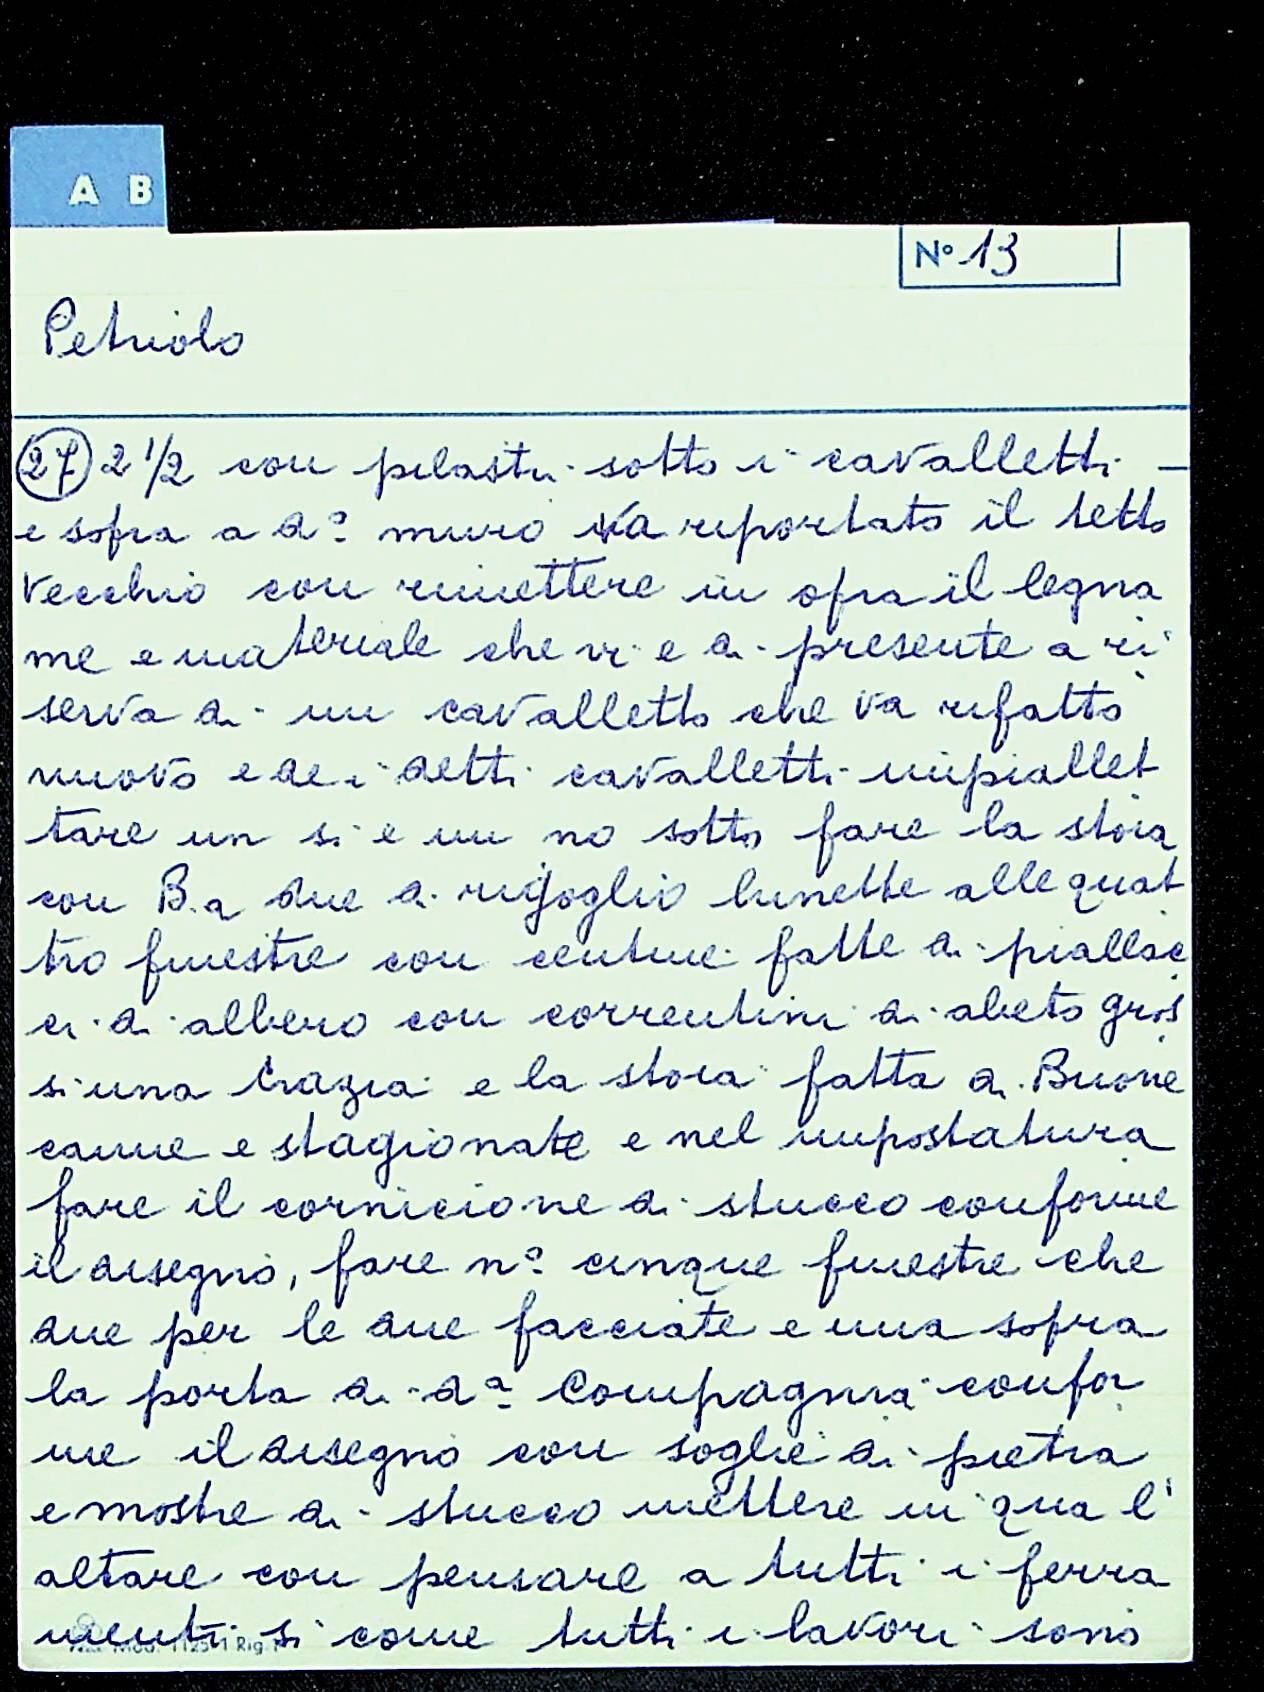 A B
N° 13
Petriolo
27 2 1/2 con pilastri sotto i cavalletti –
e sopra a d.° muro va riportato il tetto
vecchio con rimettere in opra il legna
me e materiale che vi e di presente a ri
serva di un cavalletto che va rifatto
nuovo e de i detti cavalletti impiallet
tare un si e un no sotto fare la stoia
con B.a due di rigoglio lunette alle quat
tro finestre con centine fatte di piallac
ci di albero con correntini di abeto gros
si una crazia e la stoia fatta di Buone
canne e stagionate e nel impostatura
fare il cornicione di stucco conforme
il disegno, fare n° cinque finestre che
due per le due facciate e una sopra
la porta di d.ª Compagnia confor
me il disegno con soglie di pietra
e mostre di stucco mettere in qua l'
altare con pensare a tutti i ferra
menti si come tutti i lavori sono